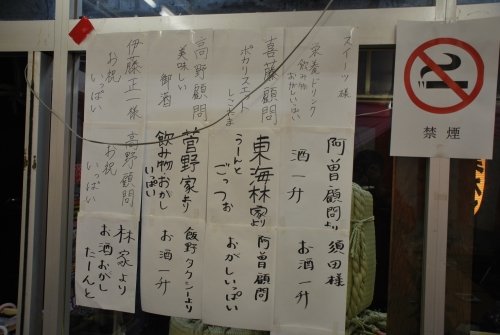 スイーツ様
栄養ドリンク
飲み物
お菓子いっぱい
喜藤顧問
ポカリスエット
しこたま
高野顧問
美味しい
御酒
伊藤正一様
お祝
いっぱい
阿曽顧問より
酒一升
東海林家より
うーんと
ごっつぉ
菅野家より
飲み物おかし
いっぱい
高野顧問
お祝
いっぱい
須田様
お酒一升
阿曽顧問
おがしいっぱい
飯野タクシーより
お酒一升
林家より
お酒おかし
たーんと
禁煙